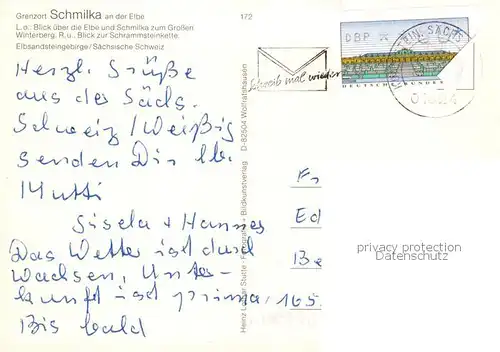 Grenzort Schmilka an der Elbe
L. o.: Blick über die Elbe und Schmilka zum Großen
Winterberg. R. u.: Blick zur Schrammsteinkette.
Elbsandsteingebirge/Sächsische Schweiz
172
Herzl. Grüße
aus der Sächs.
Schweiz / Weißig
senden Dir lb.
Mutti
Gisela + Hannes
Das Wetter ist durch
wachsen, Unter-
kunft ist prima,
Bis bald
Schreib mal wieder
DBP
DEUTSCHE BUNDES
SACHS
D-82504 Wolfratshausen
Fotografie + Bildkunstverlag
Heinz
Fr
Ed
Be
privacy protection
Datenschutz